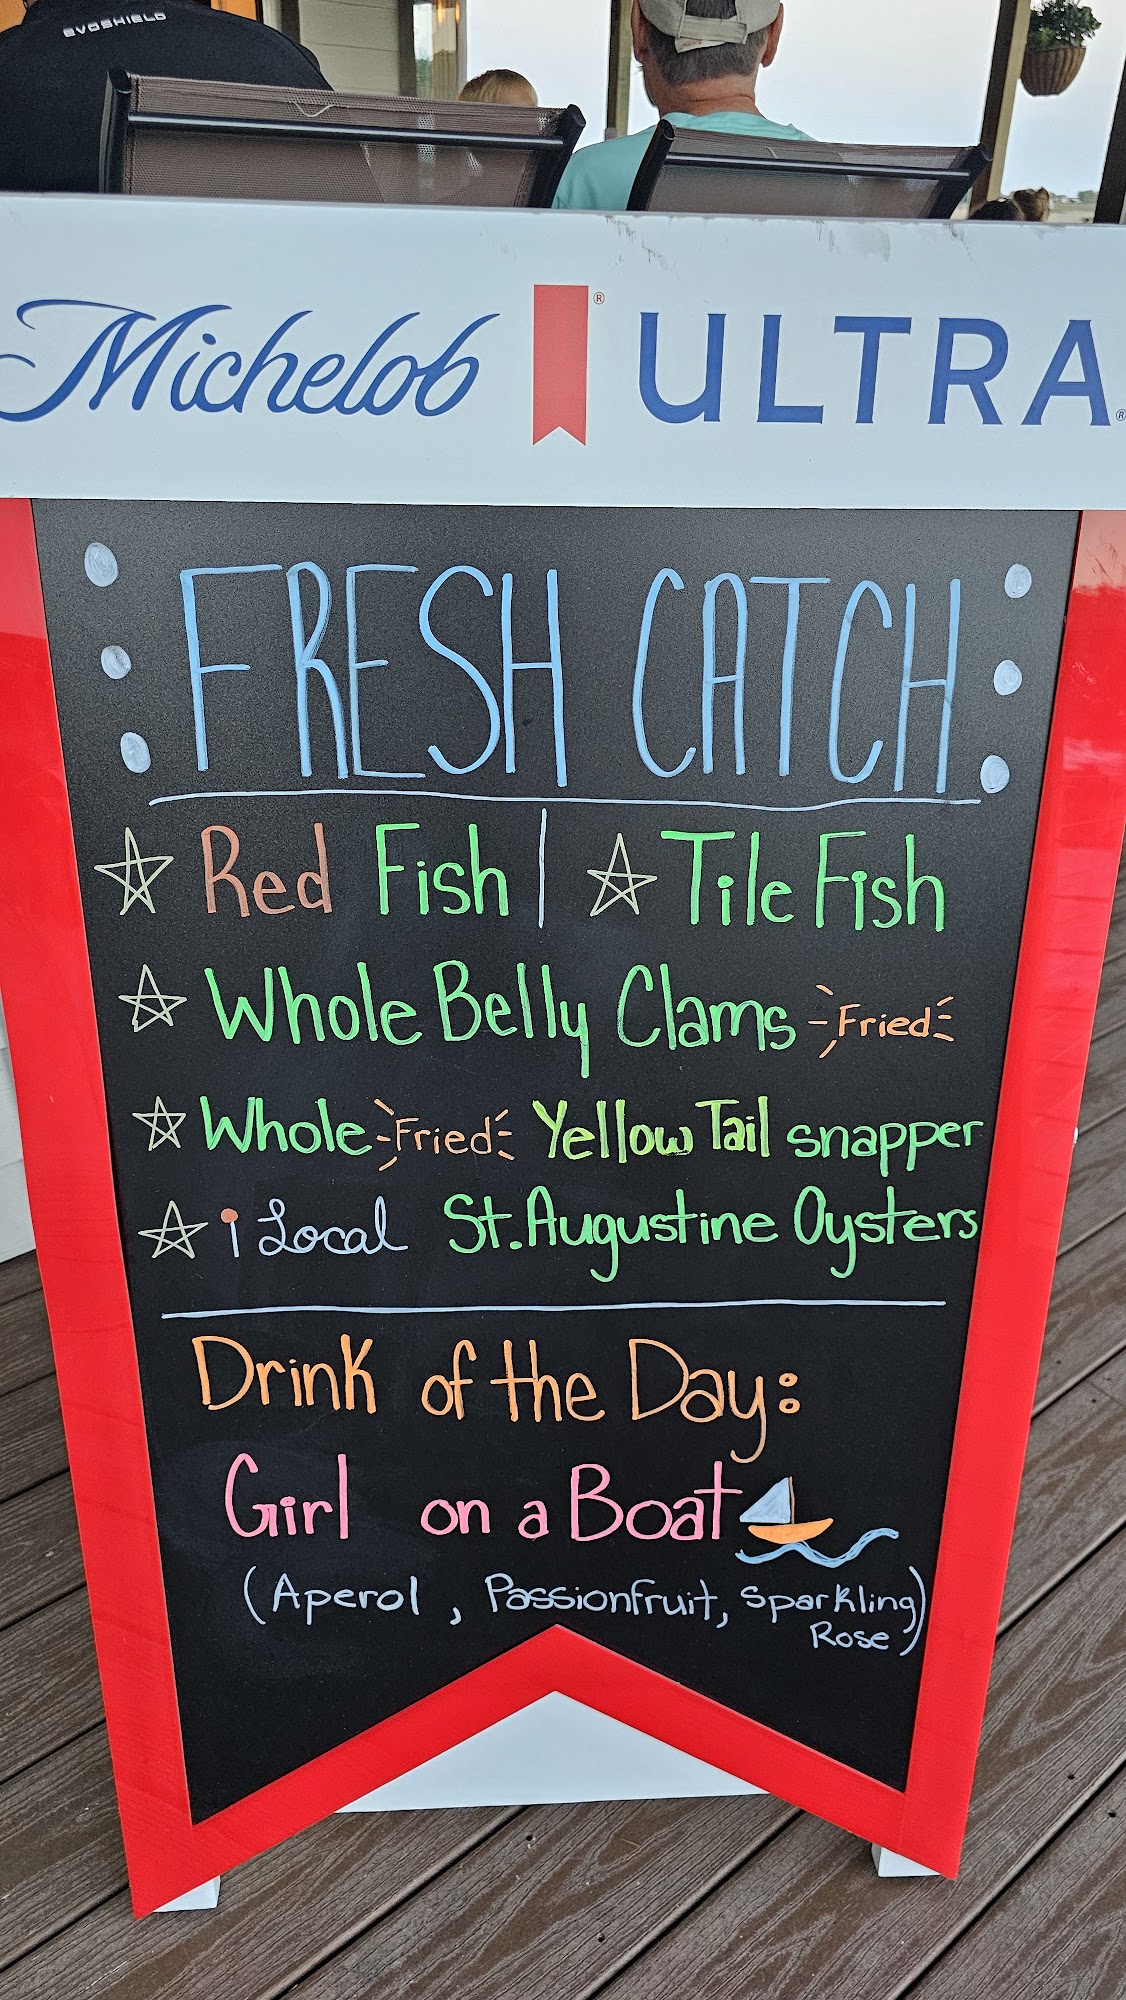 EVOSHIELD
Michelob ® ULTRA®
FRESH CATCH
Red Fish | Tile Fish
Whole Belly Clams -Fried-
Whole -Fried- Yellow Tail snapper
¡ Local St. Augustine Oysters
Drink of the Day:
Girl on a Boat
(Aperol, Passionfruit, Sparkling
Rose)